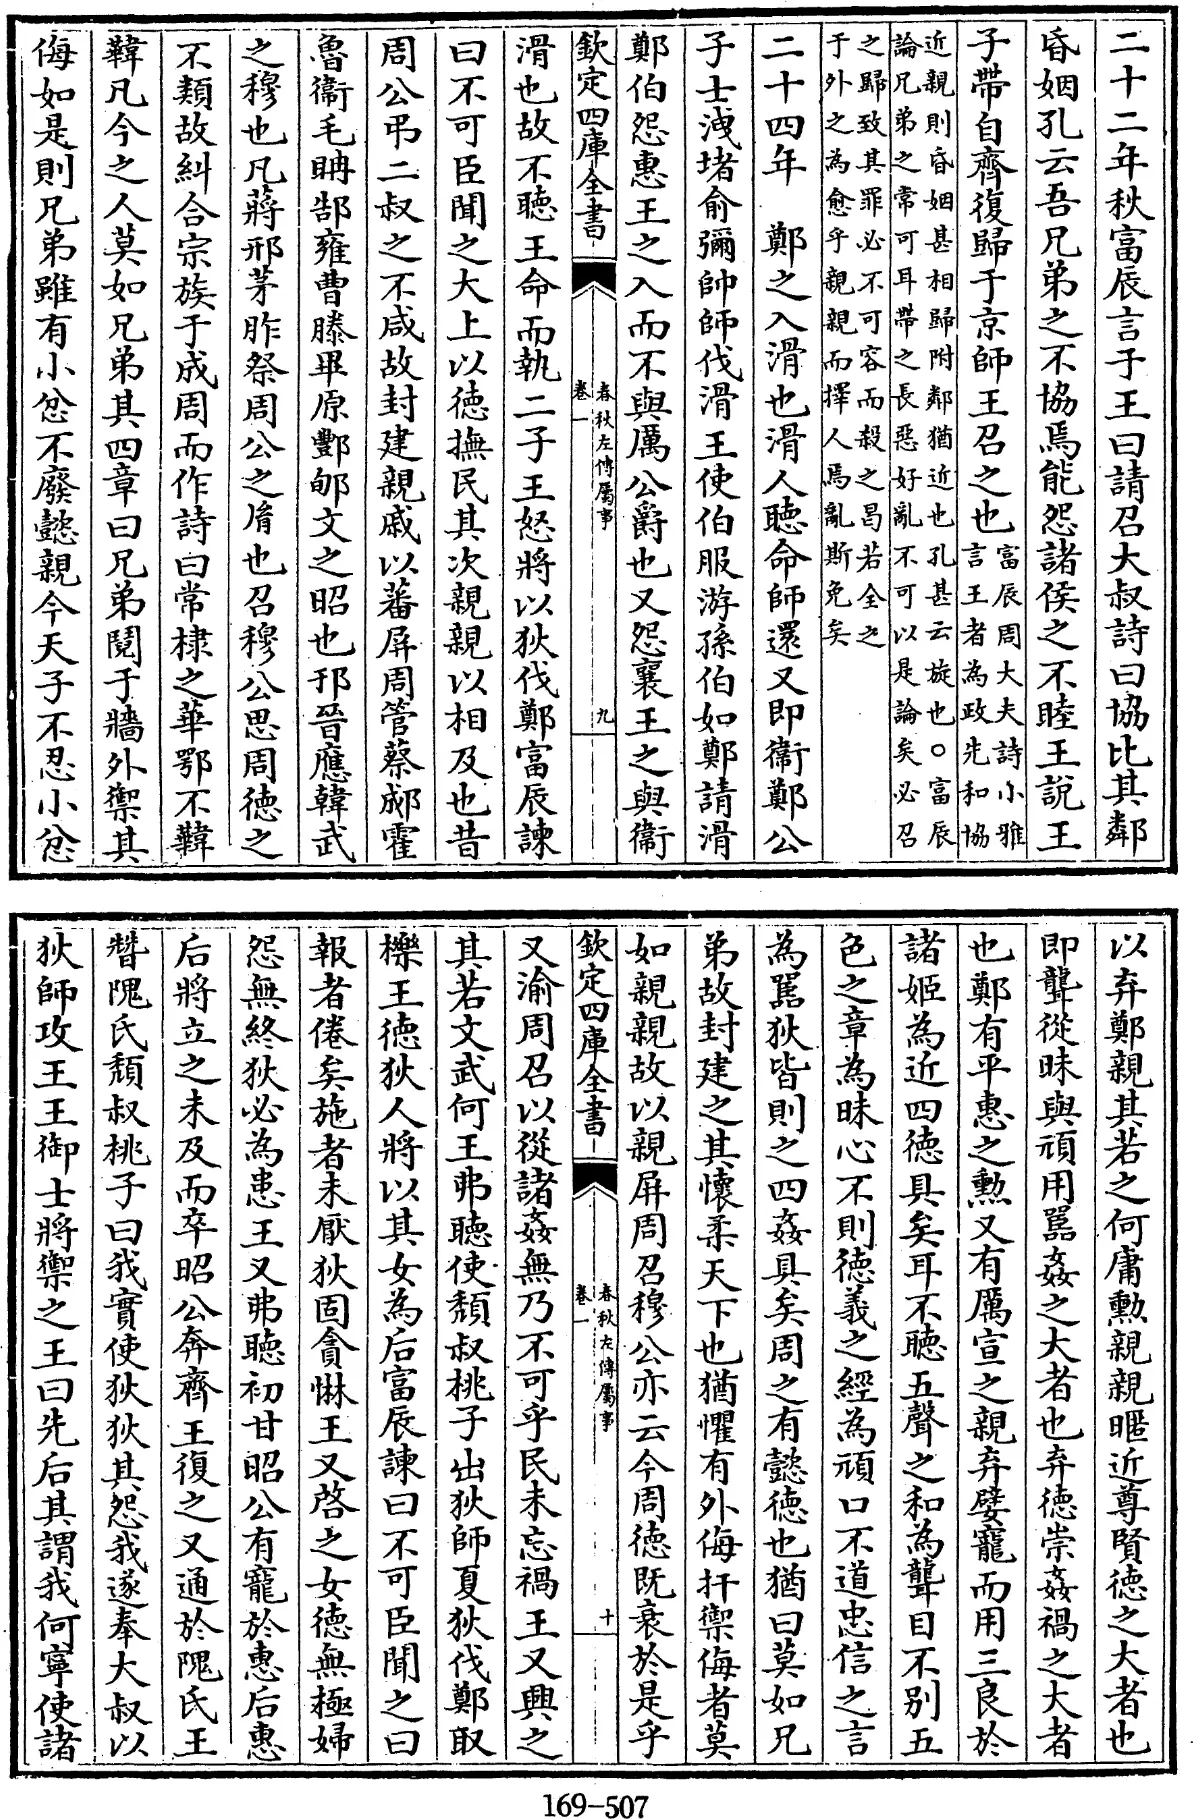 二十二年秋富辰言于王曰請召大叔詩曰協比其鄰
昏姻孔云吾兄弟之不協焉能怨諸侯之不睦王説王
子帶自齊復歸于京師王召之也富辰周大夫詩小雅
言王者為政先和協
近親則昏姻甚相歸附鄰猶近也孔甚云旋也○富辰
論兄弟之常可耳帶之長惡好亂不可以是論矣必召
之歸致其罪必不可容而殺之曷若全之
于外之為愈乎親親而擇人焉亂斯免矣
二十四年　鄭之入滑也滑人聽命師還又即衞鄭公
子士洩堵俞彌帥師伐滑王使伯服游孫伯如鄭請滑
鄭伯怨惠王之入而不與厲公爵也又怨襄王之與衞
欽定四庫全書
春秋左傳屬事
卷一
九
滑也故不聽王命而執二子王怒將以狄伐鄭富辰諫
曰不可臣聞之大上以德撫民其次親親以相及也昔
周公弔二叔之不咸故封建親戚以蕃屏周管蔡郕霍
魯衞毛聃郜雍曹滕畢原酆郇文之昭也邘晉應韓武
之穆也凡蔣邢茅胙祭周公之胤也召穆公思周德之
不類故糾合宗族于成周而作詩曰常棣之華鄂不韡
韡凡今之人莫如兄弟其四章曰兄弟鬩于牆外禦其
侮如是則兄弟雖有小忿不廢懿親今天子不忍小忿
以弃鄭親其若之何庸勲親親暱近尊賢德之大者也
即聾從昧與頑用嚚姦之大者也弃德崇姦禍之大者
也鄭有平惠之勲又有厲宣之親弃嬖寵而用三良於
諸姬為近四德具矣耳不聽五聲之和為聾目不别五
色之章為昧心不則德義之經為頑口不道忠信之言
為嚚狄皆則之四姦具矣周之有懿德也猶曰莫如兄
弟故封建之其懷柔天下也猶懼有外侮扞禦侮者莫
如親親故以親屏周召穆公亦云今周德既衰於是乎
欽定四庫全書
春秋左傳屬事
卷一
十
又渝周召以從諸姦無乃不可乎民未忘禍王又興之
其若文武何王弗聽使頽叔桃子出狄師夏狄伐鄭取
櫟王德狄人將以其女為后富辰諫曰不可臣聞之曰
報者倦矣施者未厭狄固貪惏王又啓之女德無極婦
怨無終狄必為患王又弗聽初甘昭公有寵於惠后惠
后將立之未及而卒昭公奔齊王復之又通於隗氏王
替隗氏頽叔桃子曰我實使狄狄其怨我遂奉大叔以
狄師攻王王御士將禦之王曰先后其謂我何寧使諸
169-507